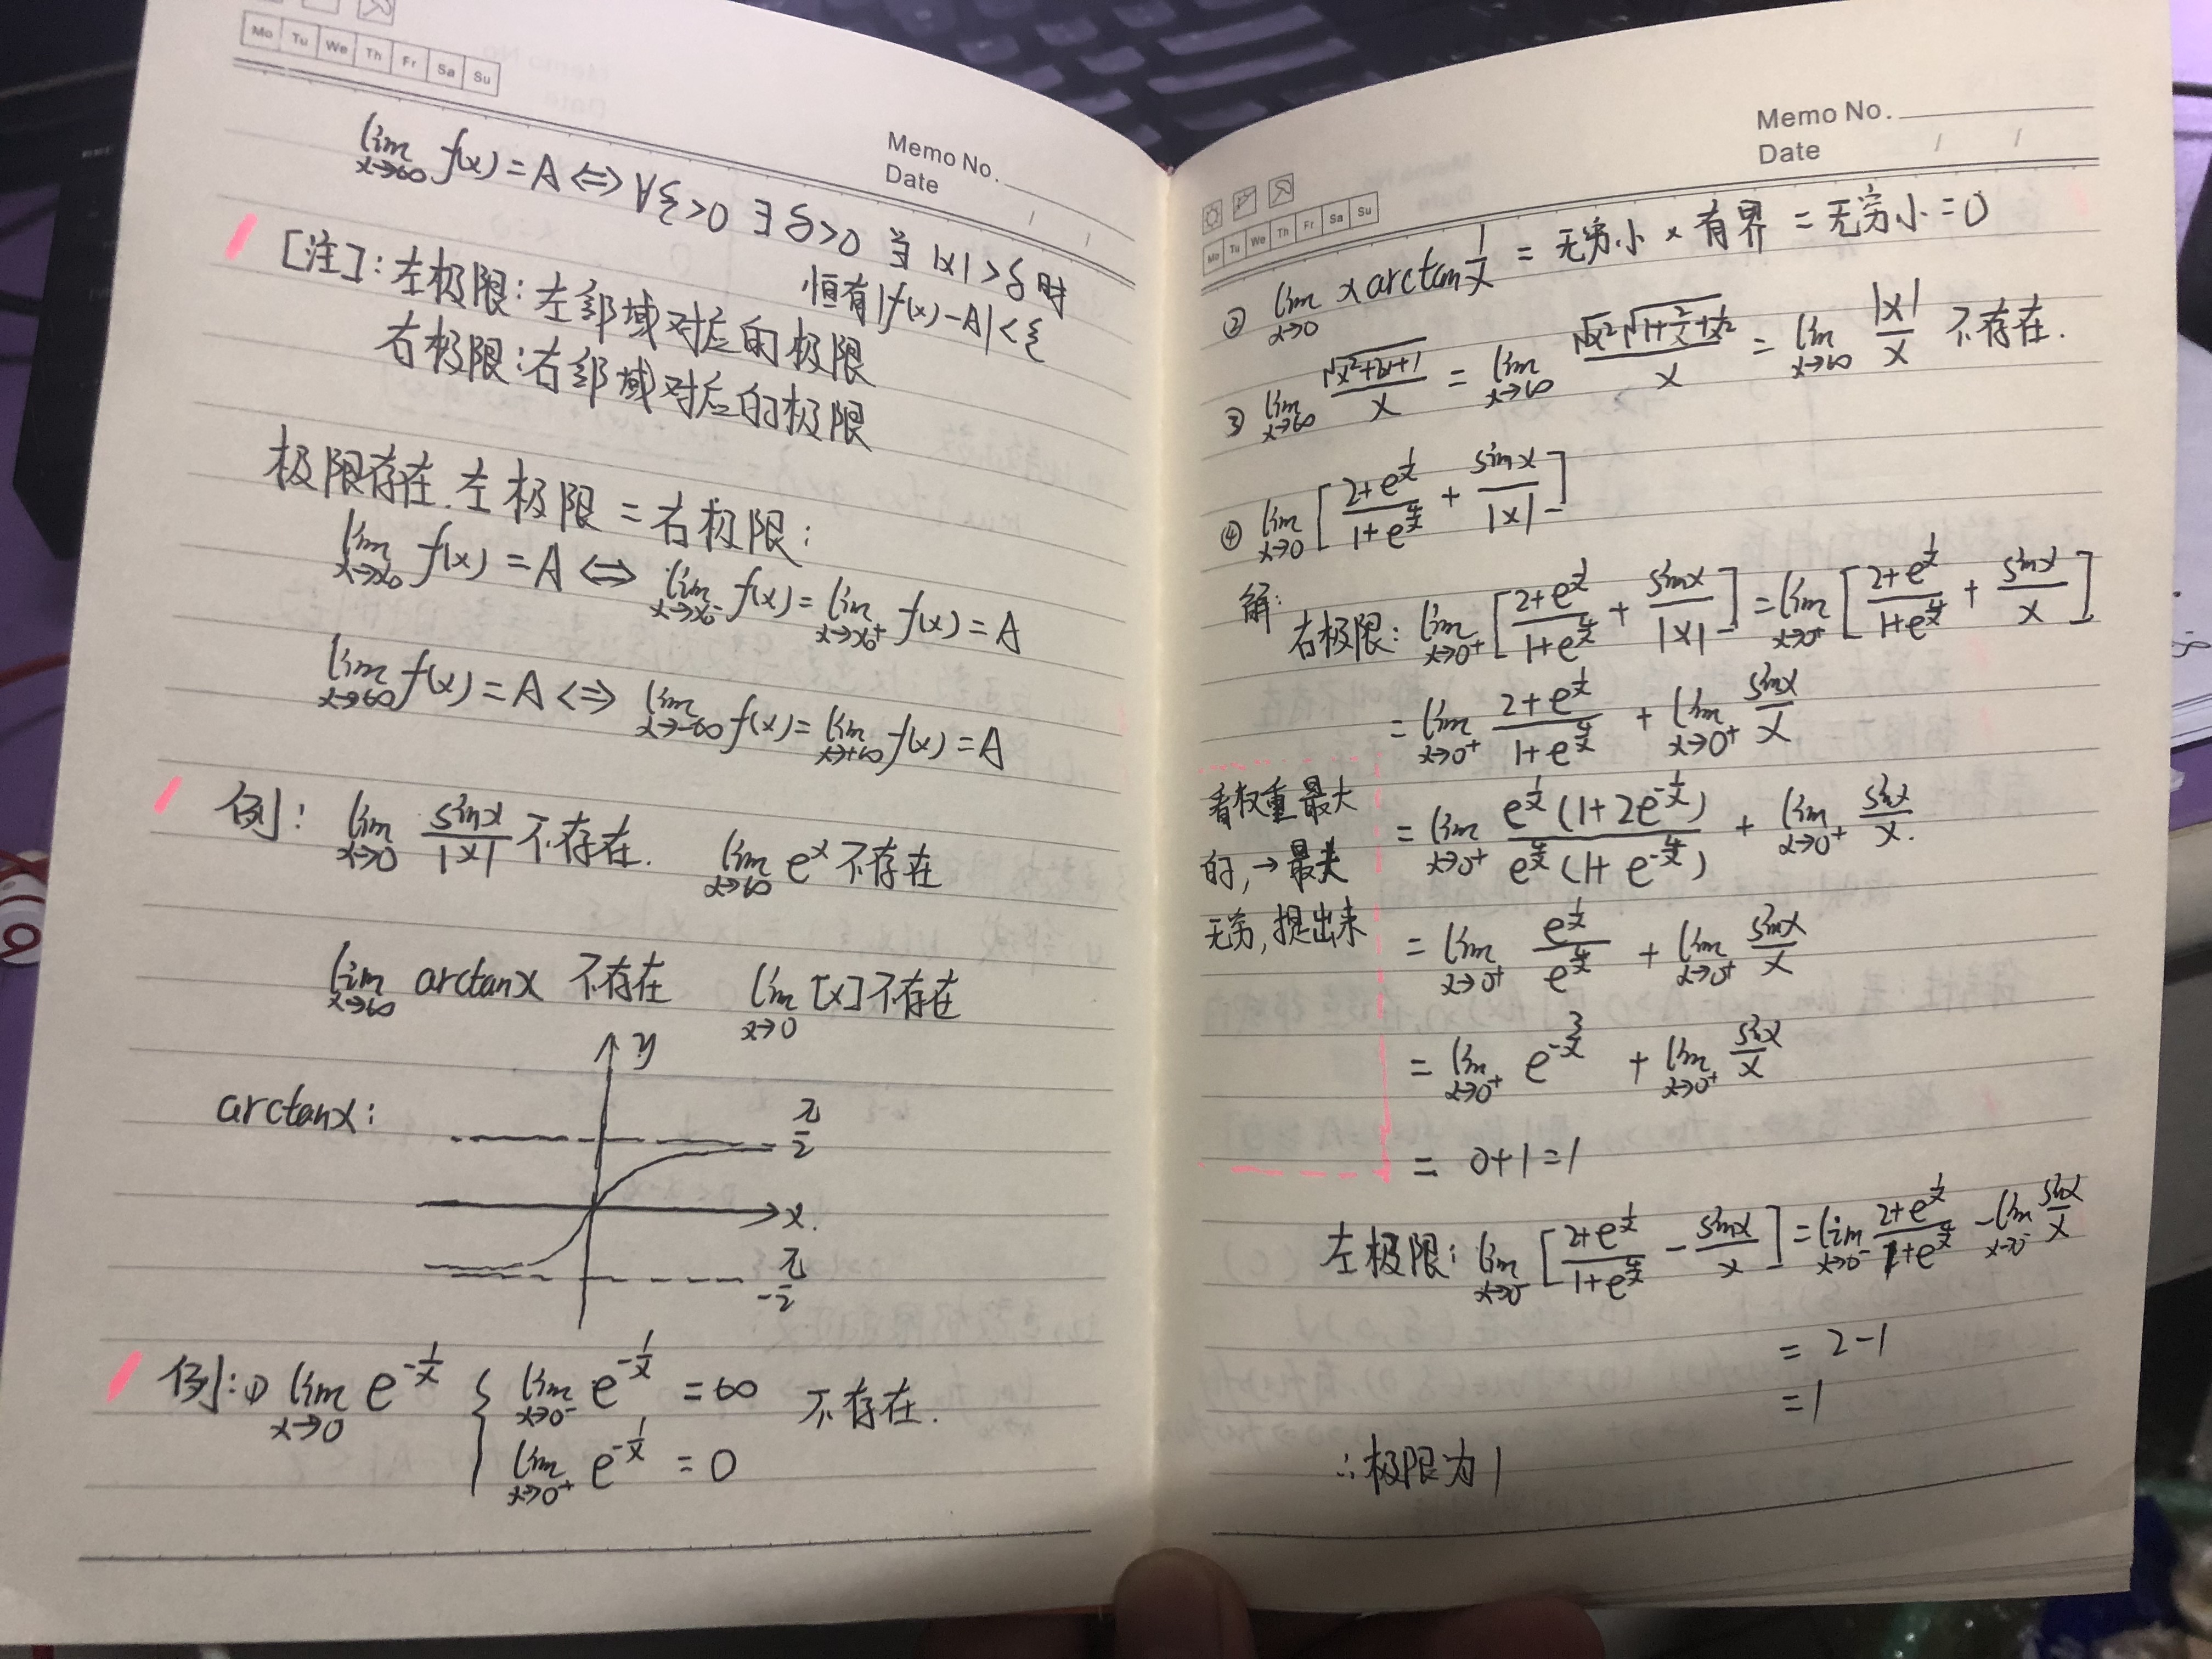 Mo Tu We Th Fr Sa Su
Memo No.
Date / /
lim x→∞ f(x) = A ⇔ ∀ε>0 ∃δ>0 当 |x|>δ 时
恒有|f(x)-A|<ε
[注]:左极限:左邻域对应的极限
右极限:右邻域对应的极限
极限存在.左极限=右极限:
lim x→x₀ f(x) = A ⇔ lim x→x₀⁻ f(x) = lim x→x₀⁺ f(x) = A
lim x→∞ f(x) = A ⇔ lim x→-∞ f(x) = lim x→+∞ f(x) = A
例: lim x→0 sinx/|x| 不存在. lim x→∞ eˣ 不存在
lim x→∞ arctanx 不存在 lim x→0 [x] 不存在
arctanx:
y
π/2
x.
-π/2
例:① lim x→0 e^(-1/x) { lim x→0⁻ e^(-1/x) = ∞ 不存在.
lim x→0⁺ e^(-1/x) = 0
Memo No.
Date / /
Mo Tu We Th Fr Sa Su
② lim x→0 x arctan 1/x = 无穷小 × 有界 = 无穷小 = 0
③ lim x→∞ √(x²+2x+1)/x = lim x→∞ √x²√(1+2/x+1/x²)/x = lim x→∞ |x|/x 不存在.
④ lim x→0 [(2+e^(1/x))/(1+e^(4/x)) + sinx/|x|]
解:
右极限: lim x→0⁺ [(2+e^(1/x))/(1+e^(4/x)) + sinx/|x|] = lim x→0⁺ [(2+e^(1/x))/(1+e^(4/x)) + sinx/x]
= lim x→0⁺ (2+e^(1/x))/(1+e^(4/x)) + lim x→0⁺ sinx/x
看权重最大
的,→最大
无穷,提出来
= lim x→0⁺ e^(1/x)(1+2e^(-1/x))/e^(4/x)(1+e^(-4/x)) + lim x→0⁺ sinx/x.
= lim x→0⁺ e^(1/x)/e^(4/x) + lim x→0⁺ sinx/x
= lim x→0⁺ e^(-3/x) + lim x→0⁺ sinx/x
= 0+1=1
左极限: lim x→0⁻ [(2+e^(1/x))/(1+e^(4/x)) - sinx/x] = lim x→0⁻ (2+e^(1/x))/(1+e^(4/x)) - lim x→0⁻ sinx/x
= 2-1
=1
∴极限为1